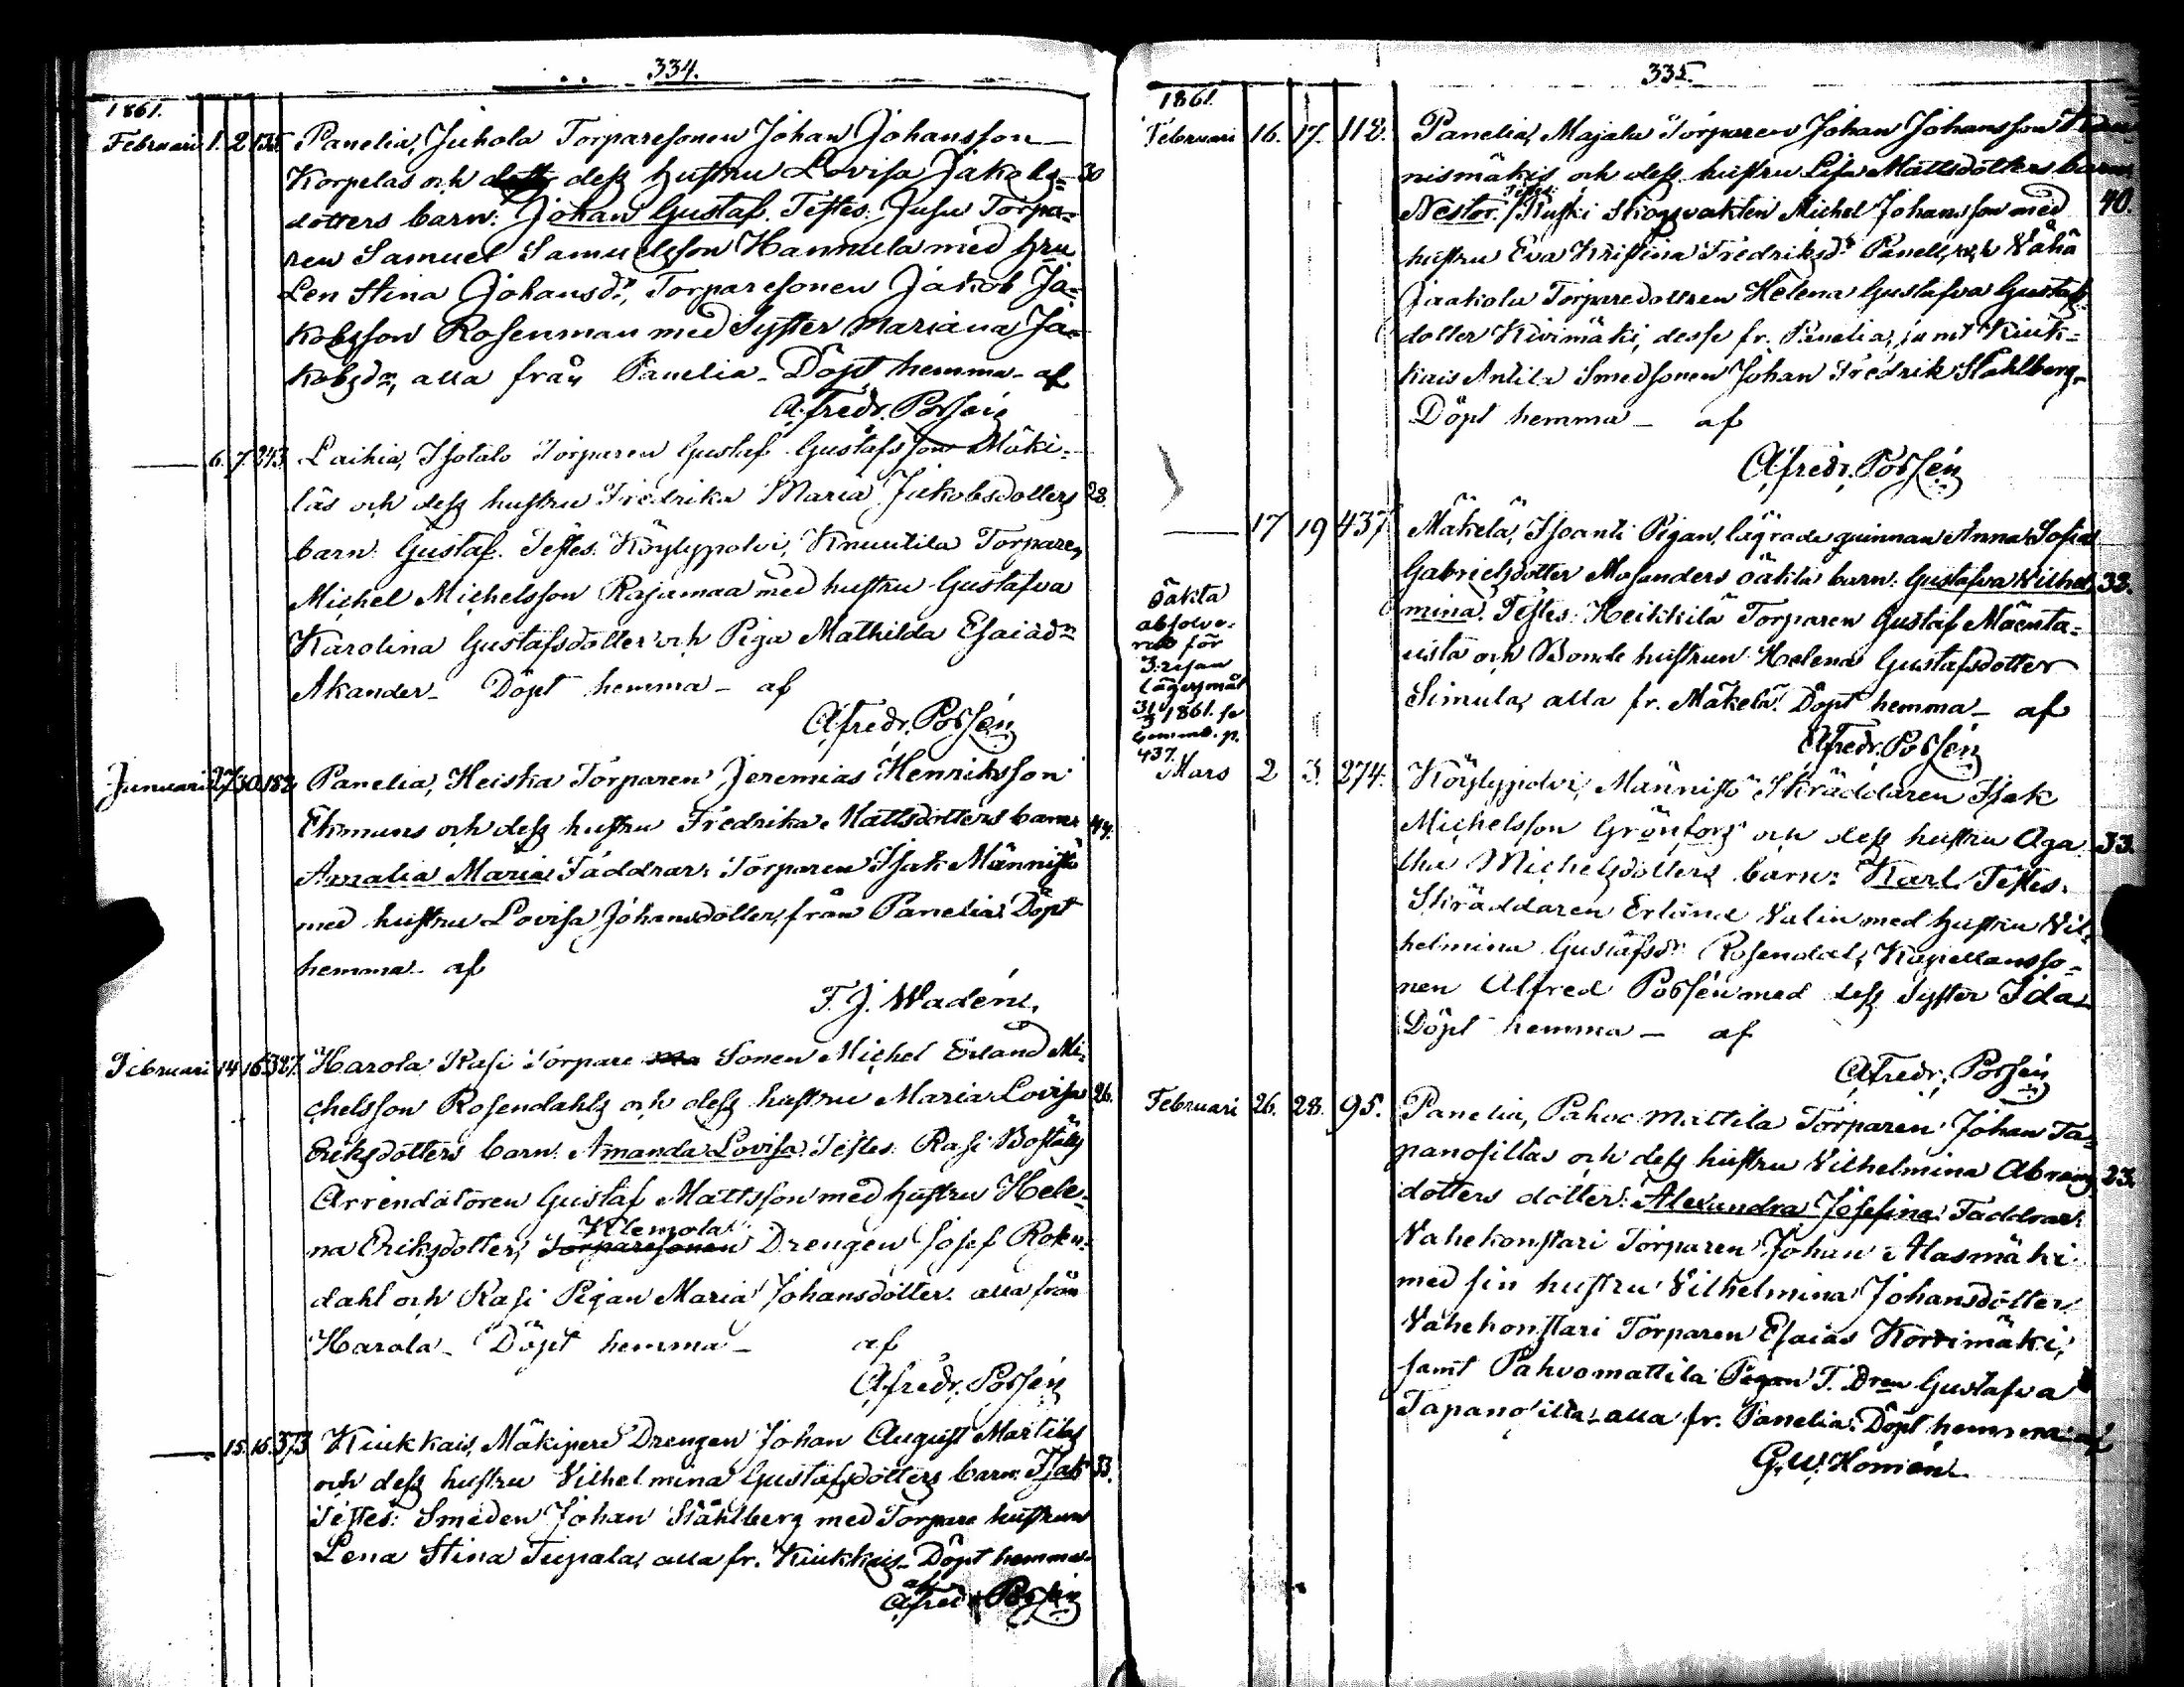 334.
1861.
Februari 1. 2 135. Panelia, Juhola Torparesonen Johan Johansson
Korpelas och dess hustru Lovisa Jakobs= 30
dotters barn: Johan Gustaf. Testes: Jusu Torpa=
ren Samuel Samuelsson Hannula med hru
Len Stina Johansdr, Torparesonen Jakob Ja=
kobsson Rosenman med Syster Mariana Ja=
kobsdr, alla från Panelia. Döpt hemma af
Afredr. Possén
6. 7. 243. Laihia, Isotalo Torparen Gustaf Gustafsson Mäki=
läs och dess hustru Fredrika Maria Jakobsdotters 28.
barn: Gustaf. Testes: Köylypolvi, Knuutila Torparen
Michel Michelsson Rajamaa med hustru Gustafva
Karolina Gustafsdotter och Piga Mathilda Esaiädr
Akander. Döpt hemma af
Afredr. Possén
Januari 27. 30. 182. Panelia, Heiska Torparen Jeremias Henriksson
Ekmans och dess hustru Fredrika Mattsdotters barn: 44.
Amalia Maria. Faddrar: Torparen Isak Männistö
med hustru Lovisa Johansdotter, från Panelia. Döpt
hemma af
F. J. Wadén.
Februari 14. 16. 327. Harola Rasi Torpare Sonen Michel Erland Mi=
chelsson Rosendahls och dess hustru Maria Lovisa 26.
Eriksdotters barn: Amanda Lovisa. Testes: Rasi Boställs
Arrendatoren Gustaf Mattsson med hustru Hele=
na Eriksdotter, Torparesonen Klemola Drengen Josef Rosen=
dahl och Rasi Pigan Maria Johansdotter. alla från
Harola. Döpt hemma af
Afredr. Possén
15. 16. 373 Kiukkais, Mäkipere Drengen Johan August Martilas
och dess hustru Vilhelmina Gustafsdotters barn: Isak 33.
Testes: Smeden Johan Ståhlberg med Torpare hustrun
Lena Stina Tupala, alla fr. Kiukkais. Döpt hemma
af
Afredr. Possén
335.
1861.
Februari 16. 17. 112. Panelia, Majala Torparen Johan Johansson
nismäkis och dess hustru Lisa Mattsdotters barn
Nestor. Testes: Ruski Skogsvakten Michel Johansson med 40.
hustru Eva Kristina Fredriksdr Panell, och Vähä
Jaakola Torparedottren Helena Gustafva Gustafs=
dotter Kivimäki, desse fr. Panelia, samt Kiuk=
kais Antila Smedsonen Johan Fredrik Ståhlberg.
Döpt hemma af
Afredr. Possén
17 19 437 Mäkelä, Isoanti Pigan, lägrade quinnan Anna Sofia
Gabrielsdotter Mosanders oäkta barn: Gustafva Vilhel= 33.
mina. Testes: Heikkilä Torparen Gustaf Mäenta=
usta och Bonde hustrun Helena Gustafsdotter
Simula, alla fr. Mäkelä. Döpt hemma af
Afredr. Possén
oäkta
absolve=
rad för
3:resan
lägersmål
31/3 1861. se
Commb. p.
437.
Mars 2 3. 274. Köylypolvi, Männistö Skräddaren Isak
Michelsson Grönfors och dess hustru Aga 33.
tha Michelsdotters barn: Karl. Testes:
Skräddaren Erland Valin med hustru Vil=
helmina Gustafsdr Rosendal, Kapellansso=
nen Alfred Possén med dess Syster Ida
Döpt hemma af
Afredr. Possén
Februari 26. 28. 95. Panelia, Pahvomattila Torparen Johan Ta=
panosillas och dess hustru Vilhelmina Abrams 23.
dotters dotter: Alexandra Josefina. Faddrar:
Vahekonstari Torparen Johan Alasmäki
med sin hustru Vilhelmina Johansdotter
Vahekonstari Torparen Esaias Korvimäki,
samt Pahvomattila Pigan T. Dren Gustafva
Tapanosilla alla fr. Panelia. Döpt hemma af
G. W. Homén.